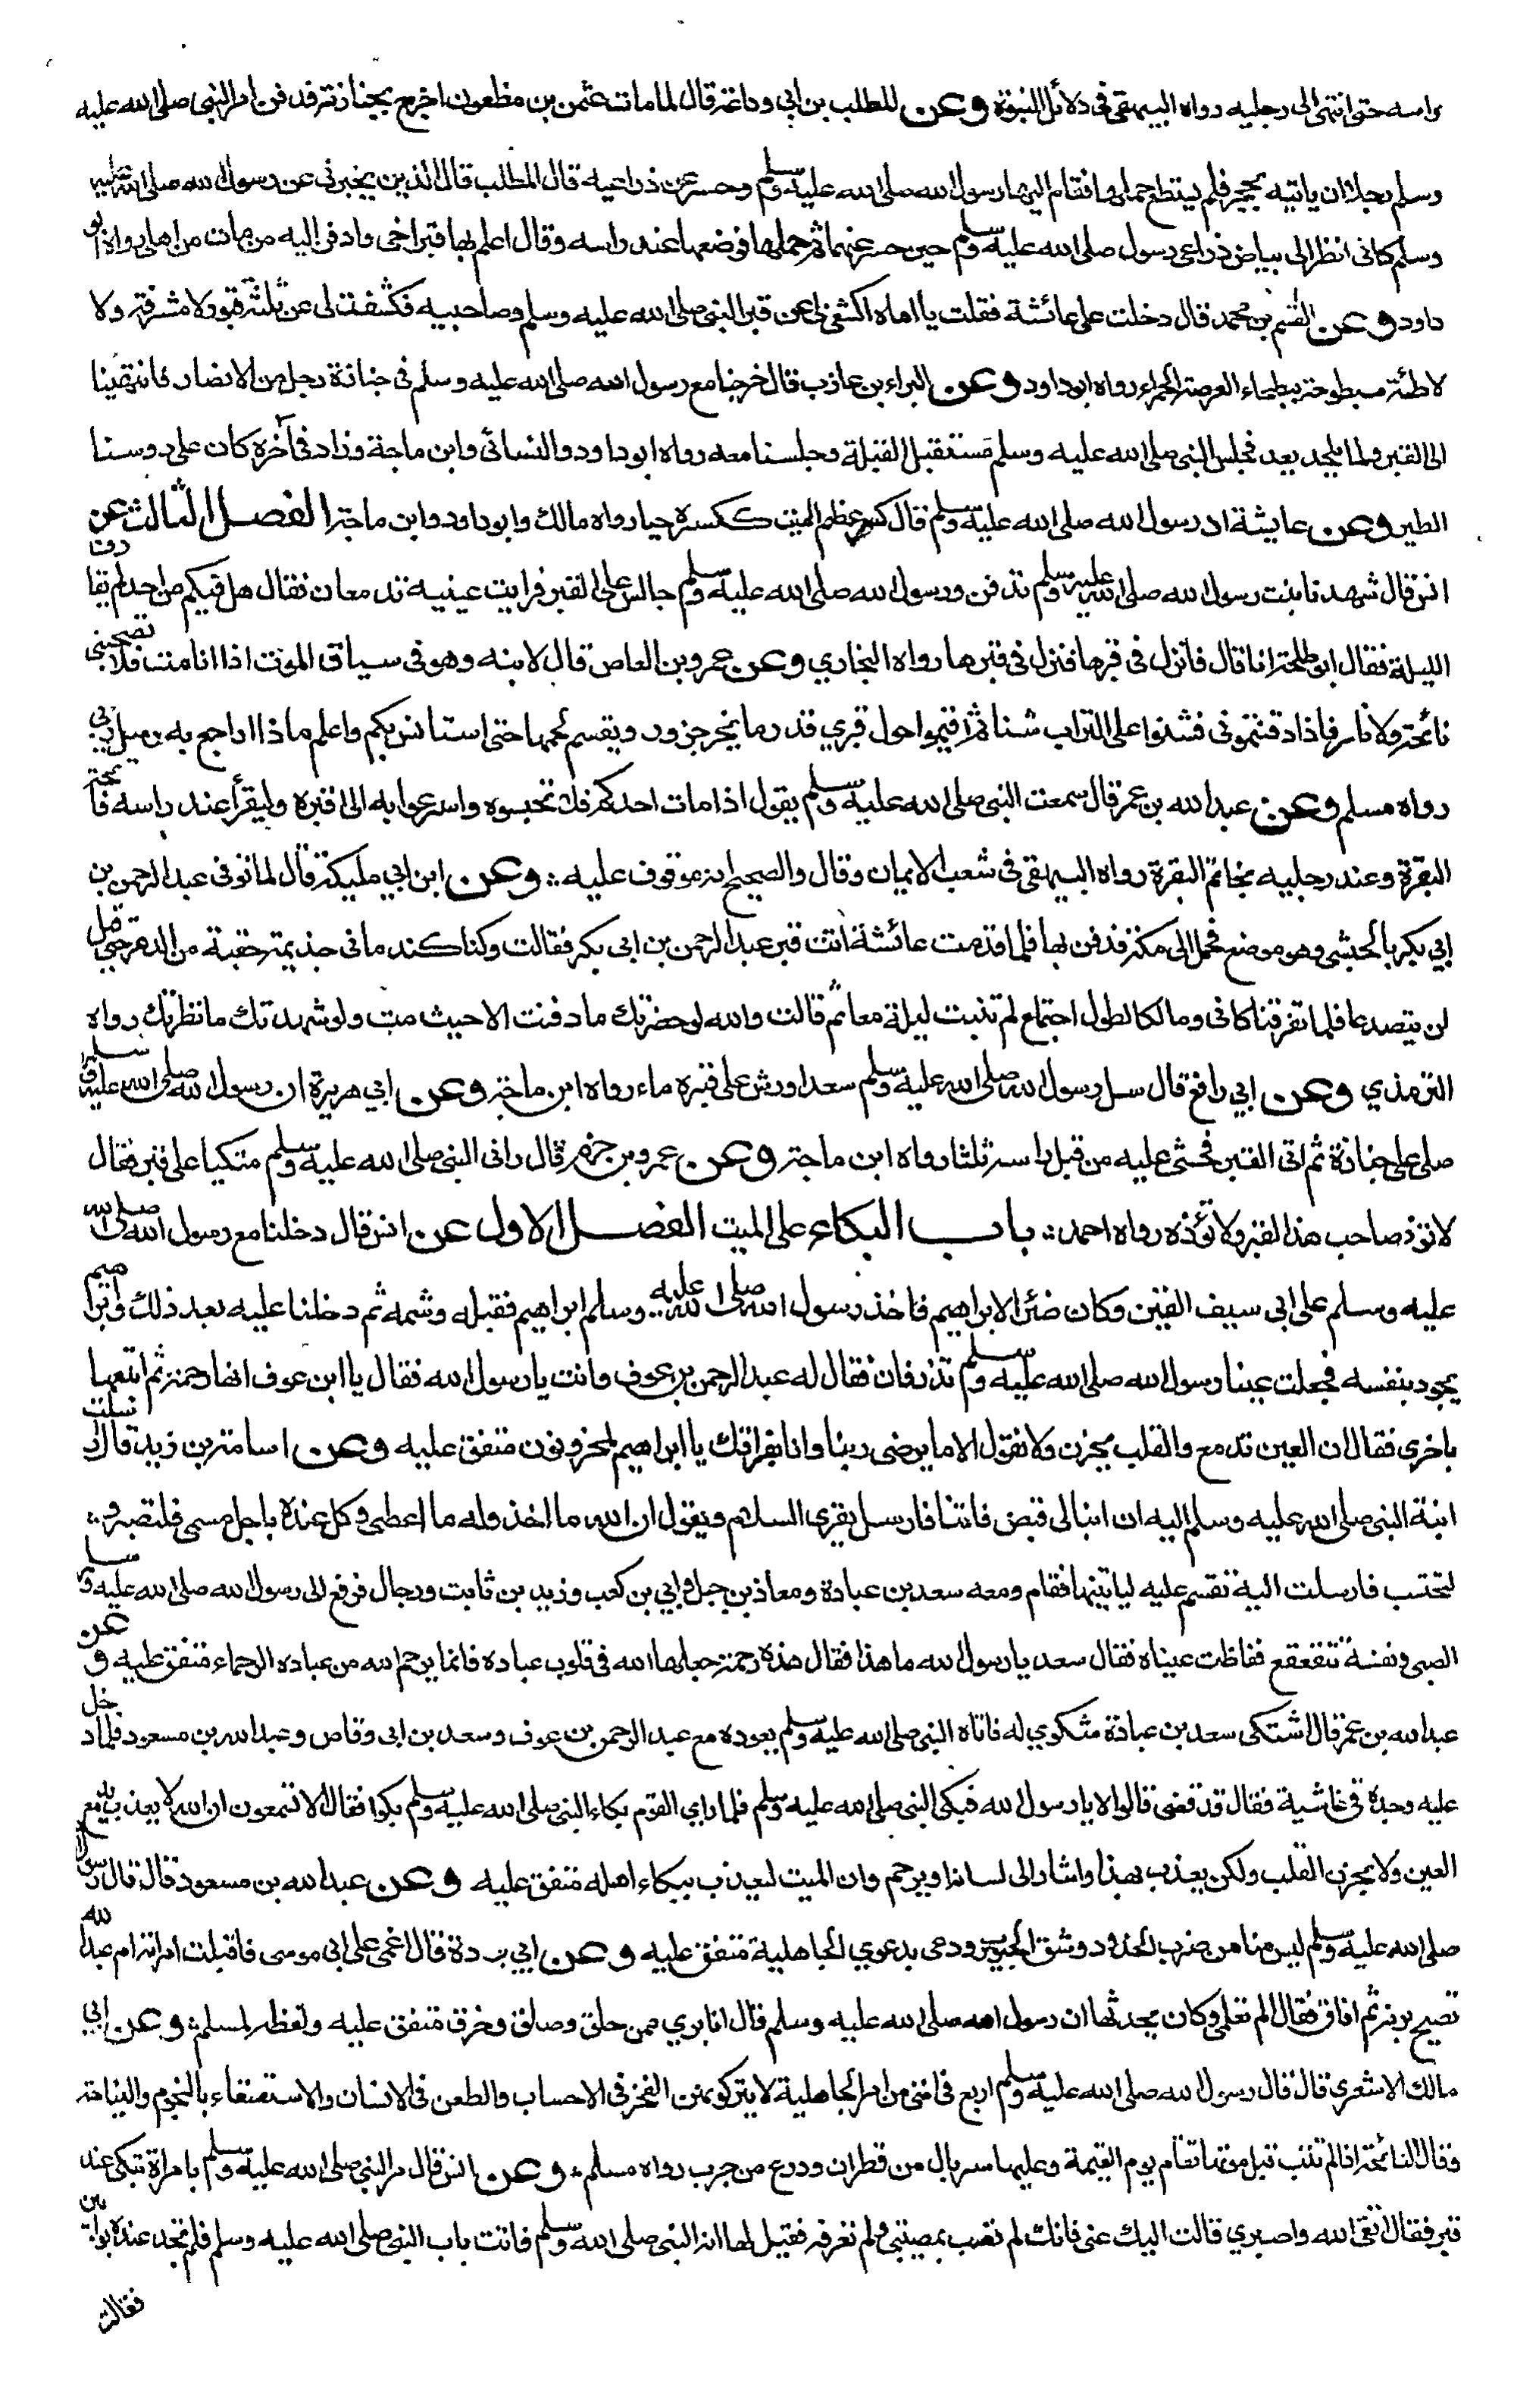 راسه حتى انتهى الى رجليه رواه البيهقي في دلائل النبوة وعن المطلب بن ابي وداعة قال لما مات عثمن بن مظعون اخرج بجنازته فدفن امر النبي صلى الله عليه
وسلم رجلا ان ياتيه بحجر فلم يستطع حملها فقام اليها رسول الله صلى الله عليه وسلم وحسر عن ذراعيه قال المطلب قال الذين يخبرني عن رسول الله صلى الله عليه
وسلم كاني انظر الى بياض ذراعي رسول صلى الله عليه وسلم حين حسر عنهما ثم حملها فوضعها عند راسه وقال اعلم بها قبر اخي وادفن اليه من مات من اهلي رواه ابو
داود وعن القسم بن محمد قال دخلت على عائشة فقلت يا اماه اكشفي لي عن قبر النبي صلى الله عليه وسلم وصاحبيه فكشفت لي عن ثلثة قبور لا مشرفة ولا
لاطئة مبطوحة ببطحاء العرصة الحمراء رواه ابو داود وعن البراء بن عازب قال خرجنا مع رسول الله صلى الله عليه وسلم في جنازة رجل من الانصار فانتهينا
الى القبر ولما يلحد بعد فجلس النبي صلى الله عليه وسلم مستقبل القبلة وجلسنا معه رواه ابو داود والنسائي وابن ماجة وزاد في آخره كان على روسنا
الطير وعن عايشة ان رسول الله صلى الله عليه وسلم قال كسر عظم الميت ككسره حيا رواه مالك وابو داود وابن ماجة الفصل الثالث عن
انس قال شهدنا بنت رسول الله صلى الله عليه وسلم تدفن ورسول الله صلى الله عليه وسلم جالس على القبر فرايت عينيه تدمعان فقال هل فيكم من احد لم يقارف
الليلة فقال ابو طلحة انا قال فانزل في قبرها فنزل في قبرها رواه البخاري وعن عمرو بن العاص قال لابنه وهو في سياق الموت اذا انا مت فلا تصحبني
نائحة ولا نار فاذا دفنتموني فشنوا على التراب شنا ثم اقيموا حول قبري قدر ما ينحر جزور ويقسم لحمها حتى استانس بكم واعلم ماذا اراجع به رسل ربي
رواه مسلم وعن عبد الله بن عمر قال سمعت النبي صلى الله عليه وسلم يقول اذا مات احدكم فلا تحبسوه واسرعوا به الى قبره وليقرأ عند راسه فاتحة
البقرة وعند رجليه بخاتمة البقرة رواه البيهقي في شعب الايمان وقال والصحيح انه موقوف عليه وعن ابن ابي مليكة قال لما توفي عبد الرحمن بن
ابي بكر بالحبشي وهو موضع فحمل الى مكة فدفن بها فلما قدمت عائشة اتت قبر عبد الرحمن بن ابي بكر فقالت وكنا كندماني جذيمة حقبة من الدهر حتى قيل
لن يتصدعا فلما تفرقنا كاني ومالكا لطول اجتماع لم نبت ليلة معا ثم قالت والله لو حضرتك ما دفنت الا حيث مت ولو شهدتك ما نظرتك رواه
الترمذي وعن ابي رافع قال سل رسول الله صلى الله عليه وسلم سعدا ورش على قبره ماء رواه ابن ماجة وعن ابي هريرة ان رسول الله صلى الله عليه وسلم
صلى على جنازة ثم اتى القبر فحثى عليه من قبل راسه ثلثا رواه ابن ماجة وعن عمرو بن حزم قال راني النبي صلى الله عليه وسلم متكيا على قبر فقال
لا تؤذ صاحب هذا القبر ولا تؤذه رواه احمد باب البكاء على الميت الفصل الاول عن انس قال دخلنا مع رسول الله صلى الله
عليه وسلم على ابي سيف القين وكان ضئرا لابراهيم فاخذ رسول الله صلى الله عليه وسلم ابراهيم فقبله وشمه ثم دخلنا عليه بعد ذلك وابراهيم
يجود بنفسه فجعلت عينا رسول الله صلى الله عليه وسلم تذرفان فقال له عبد الرحمن بن عوف وانت يا رسول الله فقال يا ابن عوف انها رحمة ثم اتبعها
باخرى فقال ان العين تدمع والقلب يحزن ولا نقول الا ما يرضى ربنا وانا بفراقك يا ابراهيم لمحزونون متفق عليه وعن اسامة بن زيد قال ارسلت
ابنة النبي صلى الله عليه وسلم اليه ان ابنا لي قبض فاتنا فارسل يقرئ السلام ويقول ان لله ما اخذ وله ما اعطى وكل عنده باجل مسمى فلتصبر و
لتحتسب فارسلت اليه تقسم عليه لياتينها فقام ومعه سعد بن عبادة ومعاذ بن جبل وابي بن كعب وزيد بن ثابت ورجال فرفع الى رسول الله صلى الله عليه وسلم
الصبي ونفسه تتقعقع ففاظت عيناه فقال سعد يا رسول الله ما هذا فقال هذه رحمة جعلها الله في قلوب عباده فانما يرحم الله من عباده الرحماء متفق عليه وعن
عبد الله بن عمر قال اشتكى سعد بن عبادة شكوي له فاتاه النبي صلى الله عليه وسلم يعوده مع عبد الرحمن بن عوف وسعد بن ابي وقاص وعبد الله بن مسعود فلما دخل
عليه وجده في غاشية فقال قد قضى قالوا لا يا رسول الله فبكى النبي صلى الله عليه وسلم فلما راى القوم بكاء النبي صلى الله عليه وسلم بكوا فقال الا تسمعون ان الله لا يعذب بدمع
العين ولا بحزن القلب ولكن يعذب بهذا واشار الى لسانه او يرحم وان الميت ليعذب ببكاء اهله متفق عليه وعن عبد الله بن مسعود قال قال رسول
صلى الله عليه وسلم ليس منا من ضرب الخدود وشق الجيوب ودعى بدعوي الجاهلية متفق عليه وعن ابي بردة قال اغمى على ابي موسى فاقبلت امراته ام عبد الله
تصيح برنة ثم افاق فقال الم تعلمي وكان يحدثها ان رسول الله صلى الله عليه وسلم قال انا بري ممن حلق وصلق وخرق متفق عليه ولفظه لمسلم وعن ابي
مالك الاشعري قال قال رسول الله صلى الله عليه وسلم اربع في امتي من امر الجاهلية لا يتركونهن الفخر في الاحساب والطعن في الانساب والاستسقاء بالنجوم والنياحة
وقال النائحة اذا لم تتب قبل موتها تقام يوم القيمة وعليها سربال من قطران ودرع من جرب رواه مسلم وعن انس قال مر النبي صلى الله عليه وسلم بامراة تبكي عند
قبر فقال اتقى الله واصبري قالت اليك عني فانك لم تصب بمصيبتي ولم تعرفه فقيل لها انه النبي صلى الله وسلم فاتت باب النبي صلى الله عليه وسلم فلم تجد عنده بوابين
فقالت